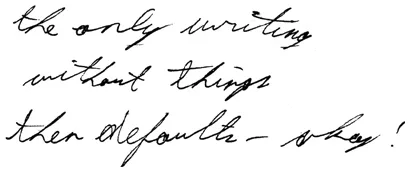 the only writing
without things
then defaults - okay!